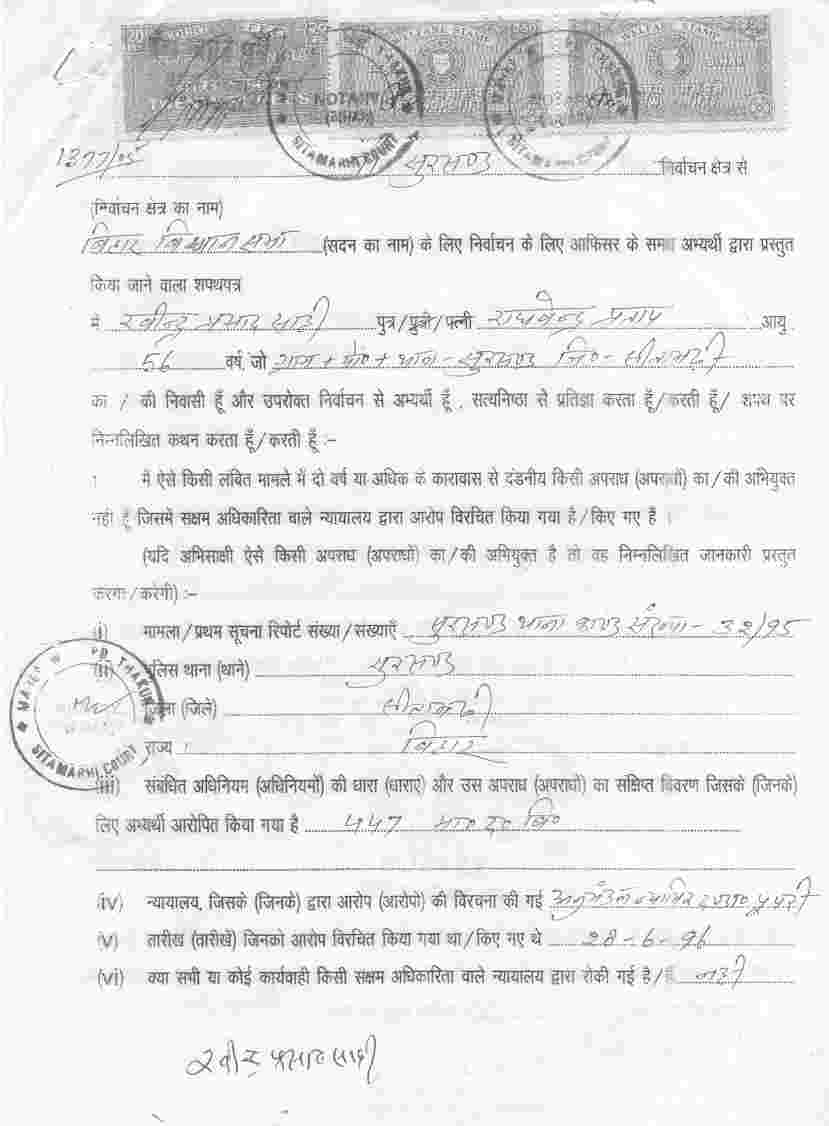 WELFARE STAMP
WELFARE STAMP
BIHAR
SITAMARHI COURT
SITAMARHI COURT
1377/05
सुरसण्ड निर्वाचन क्षेत्र से
(निर्वाचन क्षेत्र का नाम)
बिहार विधान सभा (सदन का नाम) के लिए निर्वाचन के लिए आफिसर के समक्ष अभ्यर्थी द्वारा प्रस्तुत
किया जाने वाला शपथपत्र
में रवीन्द्र प्रसाद शाही पुत्र/पुत्री/पत्नी राघवेन्द्र प्रताप आयु
56 वर्ष, जो ग्राम + पो० + थाना - सुरसण्ड जि० - सीतामढ़ी
का / की निवासी हूँ और उपरोक्त निर्वाचन से अभ्यर्थी हूँ , सत्यनिष्ठा से प्रतिज्ञा करता हूँ/करती हूँ/ शपथ पर
निम्नलिखित कथन करता हूँ/करती हूँ :-
में ऐसे किसी लंबित मामले में दो वर्ष या अधिक के कारावास से दंडनीय किसी अपराध (अपराधों) का/की अभियुक्त
नहीं हूँ जिसमें सक्षम अधिकारिता वाले न्यायालय द्वारा आरोप विरचित किया गया है/किए गए है ।
(यदि अभिसाक्षी ऐसे किसी अपराध (अपराधों) का/की अभियुक्त है तो वह निम्नलिखित जानकारी प्रस्तुत
करेगा/करेगी) :-
(i) मामला/प्रथम सूचना रिपोर्ट संख्या/संख्याएँ सुरसण्ड थाना काण्ड संख्या - 32/95
(ii) पुलिस थाना (थाने) सुरसण्ड
जिला (जिले) सीतामढ़ी
राज्य : बिहार
SITAMARHI COURT
(iii) संबंधित अधिनियम (अधिनियमों) की धारा (धाराएं) और उस अपराध (अपराधों) का संक्षिप्त विवरण जिसके (जिनके)
लिए अभ्यर्थी आरोपित किया गया है 447 भा० द० वि०
(iv) न्यायालय, जिसके (जिनके) द्वारा आरोप (आरोपो) की विरचना की गई अनुमंडल न्यायिक
(v) तारीख (तारीखें) जिनको आरोप विरचित किया गया था/किए गए थे 28-6-96
(vi) क्या सभी या कोई कार्यवाही किसी सक्षम अधिकारिता वाले न्यायालय द्वारा रोकी गई है/हैं नहीं
रवीन्द्र प्रसाद शाही